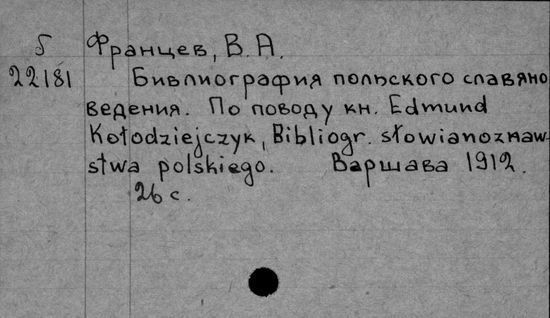 Б Францев, В. А.
22181 Библиография польского славяно
ведения. По поводу кн. Edmund
Kołodziejczyk, Bibliogr. słowianoznaw-
stwa polskiego. Варшава 1912.
26 с.